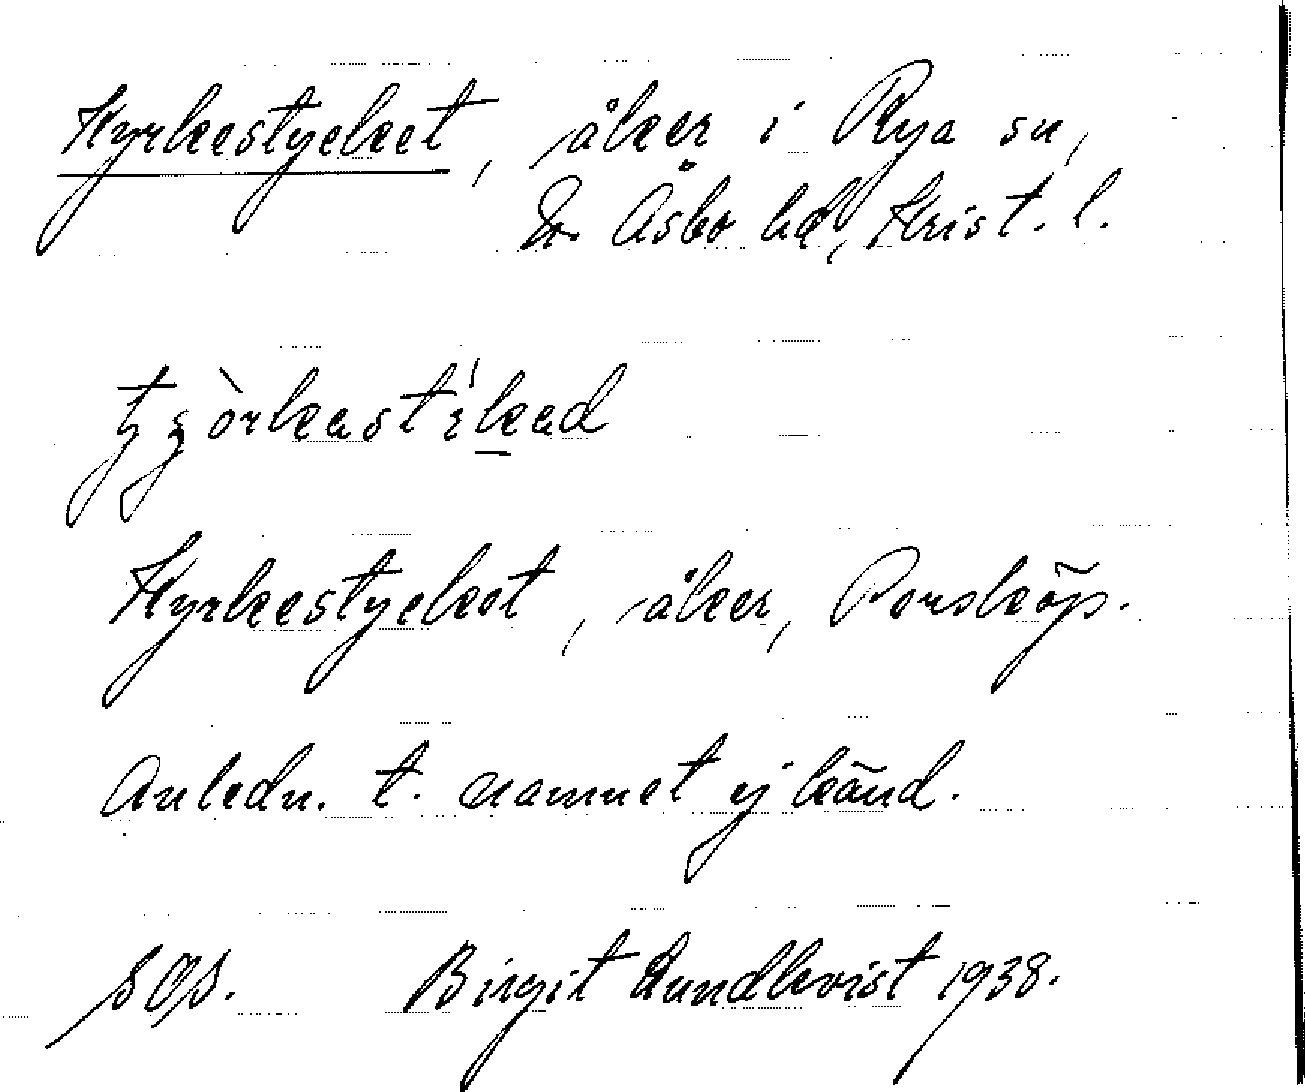 Kyrkestycket, åker i Rya sn,
Åsbo hd, Krist. l.
Kyrkestycket, åker, Porsköp.
Anledn. t. namnet ej känd.
Birgit Lundkvist 1938.